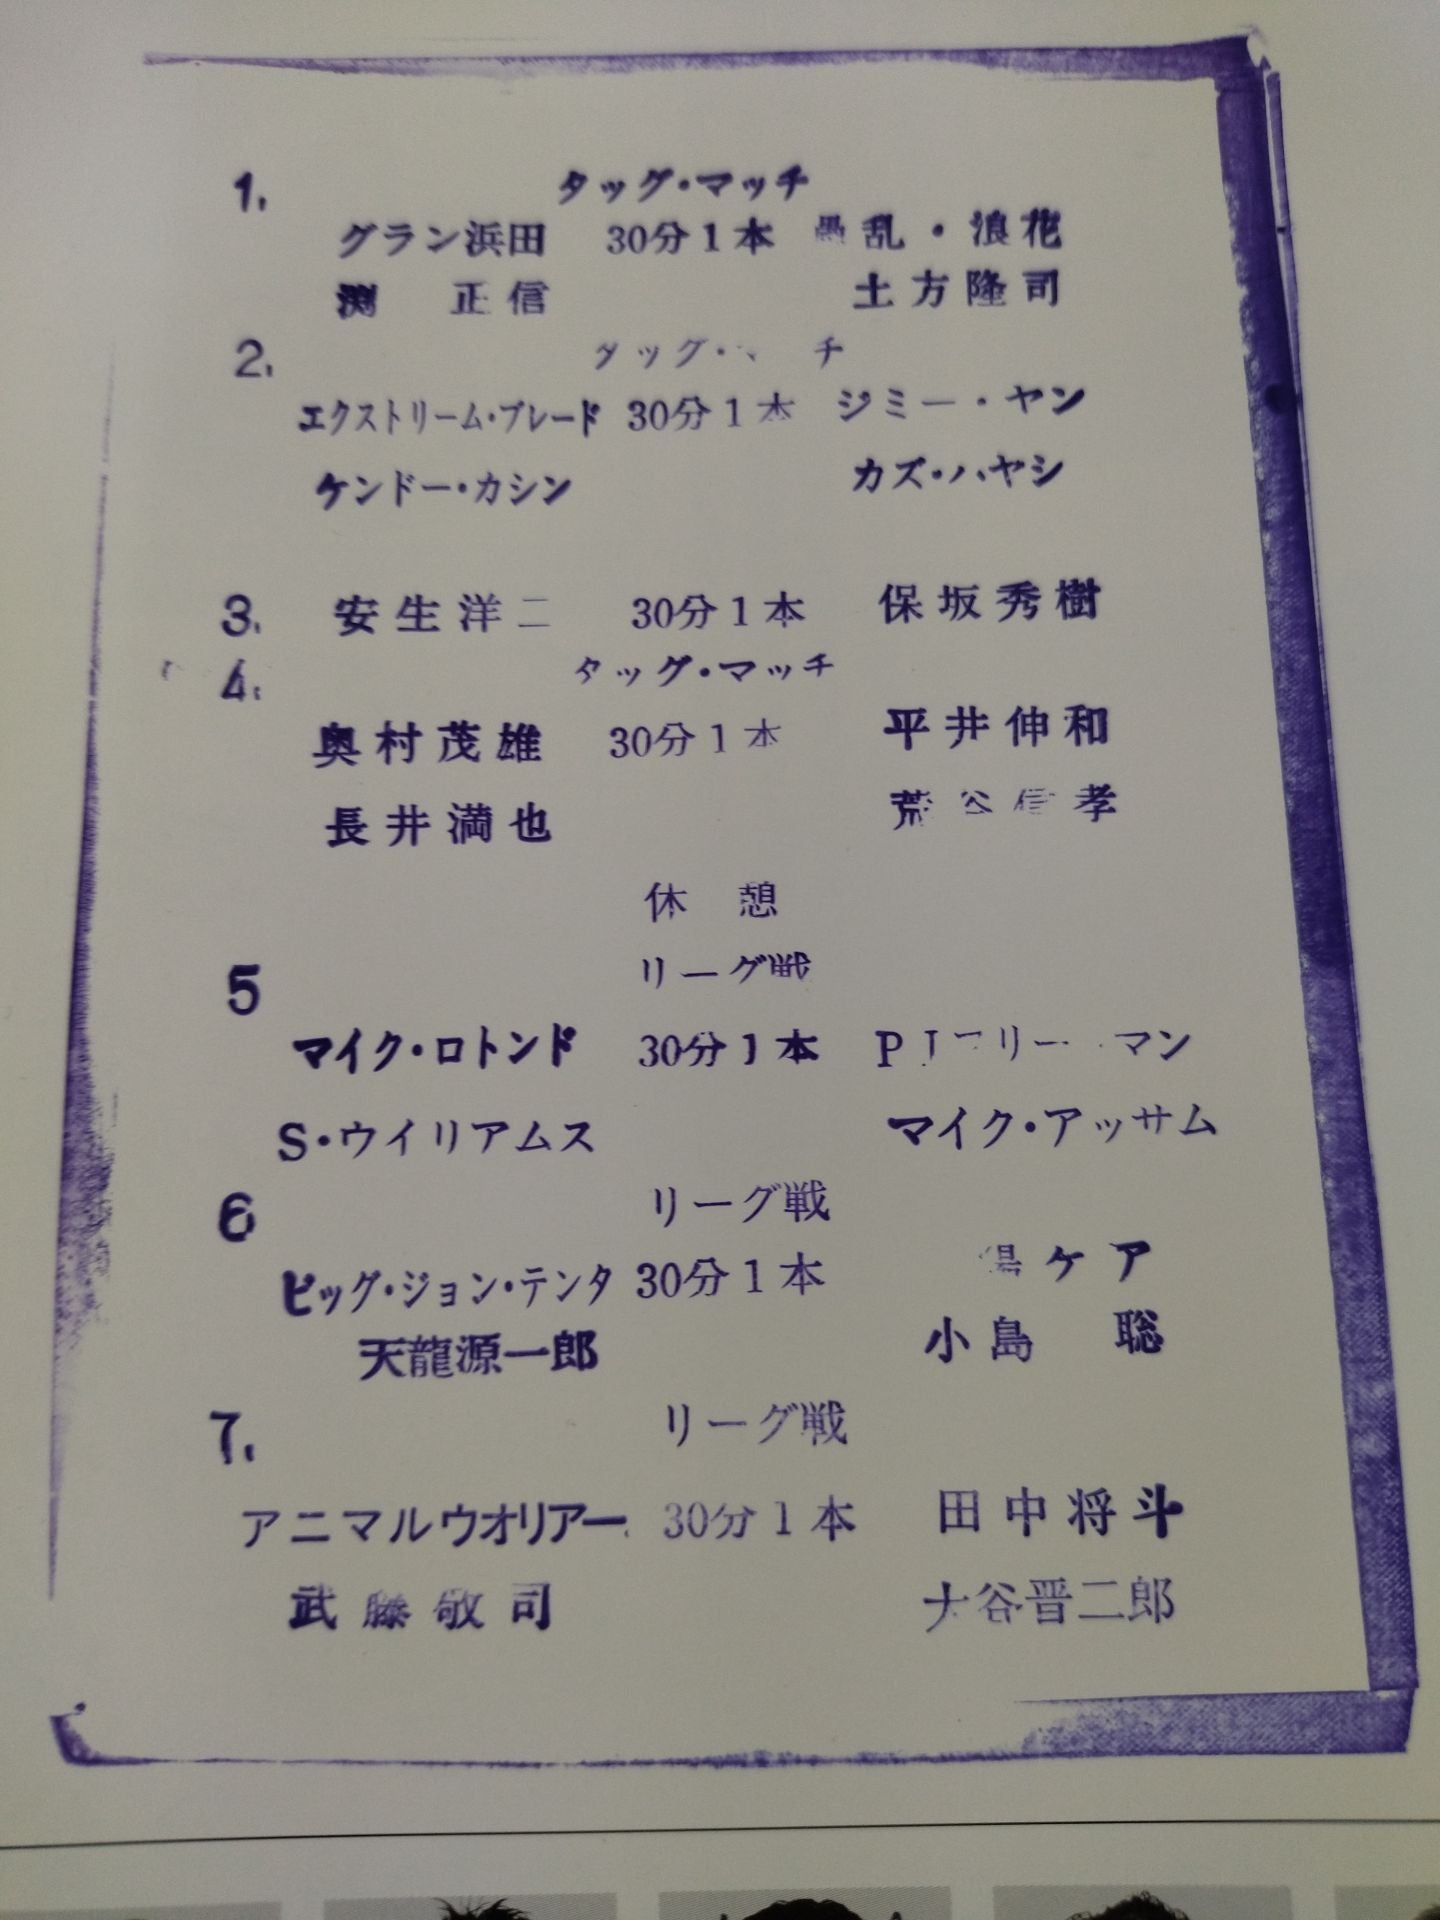 1.
タッグ・マッチ
グラン浜田 30分1本 愚乱・浪花
渕 正信 土方隆司
2.
タッグ・マッチ
エクストリーム・ブレード 30分1本 ジミー・ヤン
ケンドー・カシン カズ・ハヤシ
3. 安生洋二 30分1本 保坂秀樹
4.
タッグ・マッチ
奥村茂雄 30分1本 平井伸和
長井満也 荒谷信孝
休 憩
5
リーグ戦
マイク・ロトンド 30分1本 PJフリードマン
S・ウイリアムス マイク・アッサム
6
リーグ戦
ビッグ・ジョン・テンタ 30分1本 陽ケア
天龍源一郎 小島 聡
7.
リーグ戦
アニマルウオリアー 30分1本 田中将斗
武藤敬司 大谷晋二郎